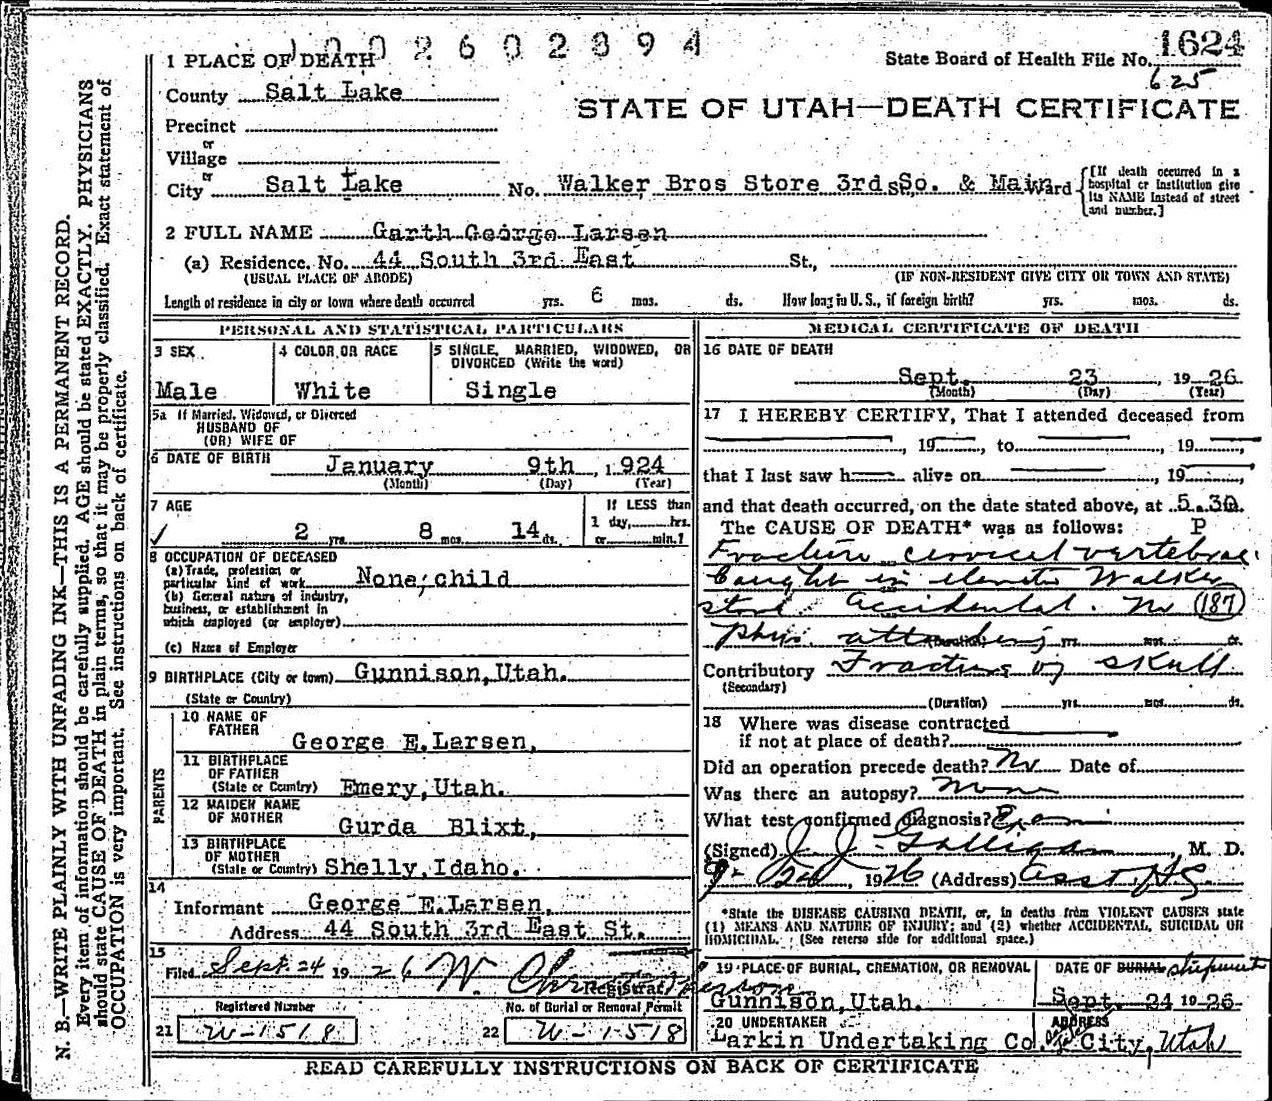 1002602894
1 PLACE OF DEATH
State Board of Health File No. 1624
625
County Salt Lake
STATE OF UTAH—DEATH CERTIFICATE
Precinct
or
Village
or
City Salt Lake No. Walker Bros Store 3rd So. & Main Ward
[If death occurred in a hospital or institution give its NAME instead of street and number.]
2 FULL NAME Garth George Larsen
(a) Residence. No. 44 South 3rd East St.,
(USUAL PLACE OF ABODE) (IF NON-RESIDENT GIVE CITY OR TOWN AND STATE)
Length of residence in city or town where death occurred yrs. 6 mos. ds. How long in U. S., if foreign birth? yrs. mos. ds.
PERSONAL AND STATISTICAL PARTICULARS
3 SEX
Male
4 COLOR OR RACE
White
5 SINGLE, MARRIED, WIDOWED, OR
DIVORCED (Write the word)
Single
5a If Married, Widowed, or Divorced
HUSBAND OF
(OR) WIFE OF
6 DATE OF BIRTH January 9th, 1924
(Month) (Day) (Year)
7 AGE
2 yrs. 8 mos. 14 ds.
If LESS than
1 day, hrs.
or min.?
8 OCCUPATION OF DECEASED
(a) Trade, profession or
particular kind of work None; child
(b) General nature of industry,
business, or establishment in
which employed (or employer)
(c) Name of Employer
9 BIRTHPLACE (City or town) Gunnison, Utah.
(State or Country)
PARENTS
10 NAME OF
FATHER
George E. Larsen,
11 BIRTHPLACE
OF FATHER
(State or Country) Emery, Utah.
12 MAIDEN NAME
OF MOTHER
Gurda Blixt,
13 BIRTHPLACE
OF MOTHER
(State or Country) Shelly, Idaho.
14
Informant George E. Larsen,
Address 44 South 3rd East St.
15
Filed Sept. 24 1926
Registrar
Registered Number No. of Burial or Removal Permit
21 W-1518 22 W-1518
MEDICAL CERTIFICATE OF DEATH
16 DATE OF DEATH
Sept. 23, 1926
(Month) (Day) (Year)
17 I HEREBY CERTIFY, That I attended deceased from
, 19 , to , 19 ,
that I last saw h alive on , 19 ,
and that death occurred, on the date stated above, at 5.30.
The CAUSE OF DEATH* was as follows: P
Fracture cervical vertebrae.
Caught in elevator Walker
store Accidental. No (187)
Phys. attending (Duration) yrs. mos. ds.
Contributory Fracture of skull.
(Secondary)
(Duration) yrs. mos. ds.
18 Where was disease contracted
if not at place of death?
Did an operation precede death? No Date of
Was there an autopsy? None
What test confirmed diagnosis? Exam
(Signed) J. J. Galligan, M. D.
9-24, 1926 (Address) Asst. H.S.
*State the DISEASE CAUSING DEATH, or, in deaths from VIOLENT CAUSES state
(1) MEANS AND NATURE OF INJURY; and (2) whether ACCIDENTAL, SUICIDAL OR
HOMICIDAL. (See reverse side for additional space.)
19 PLACE OF BURIAL, CREMATION, OR REMOVAL
Gunnison, Utah.
DATE OF BURIAL shipment
Sept. 24 1926
20 UNDERTAKER
Larkin Undertaking Co.
ADDRESS
City, Utah
READ CAREFULLY INSTRUCTIONS ON BACK OF CERTIFICATE
N. B.—WRITE PLAINLY WITH UNFADING INK—THIS IS A PERMANENT RECORD.
Every item of information should be carefully supplied. AGE should be stated EXACTLY. PHYSICIANS
should state CAUSE OF DEATH in plain terms, so that it may be properly classified. Exact statement of
OCCUPATION is very important. See instructions on back of certificate.